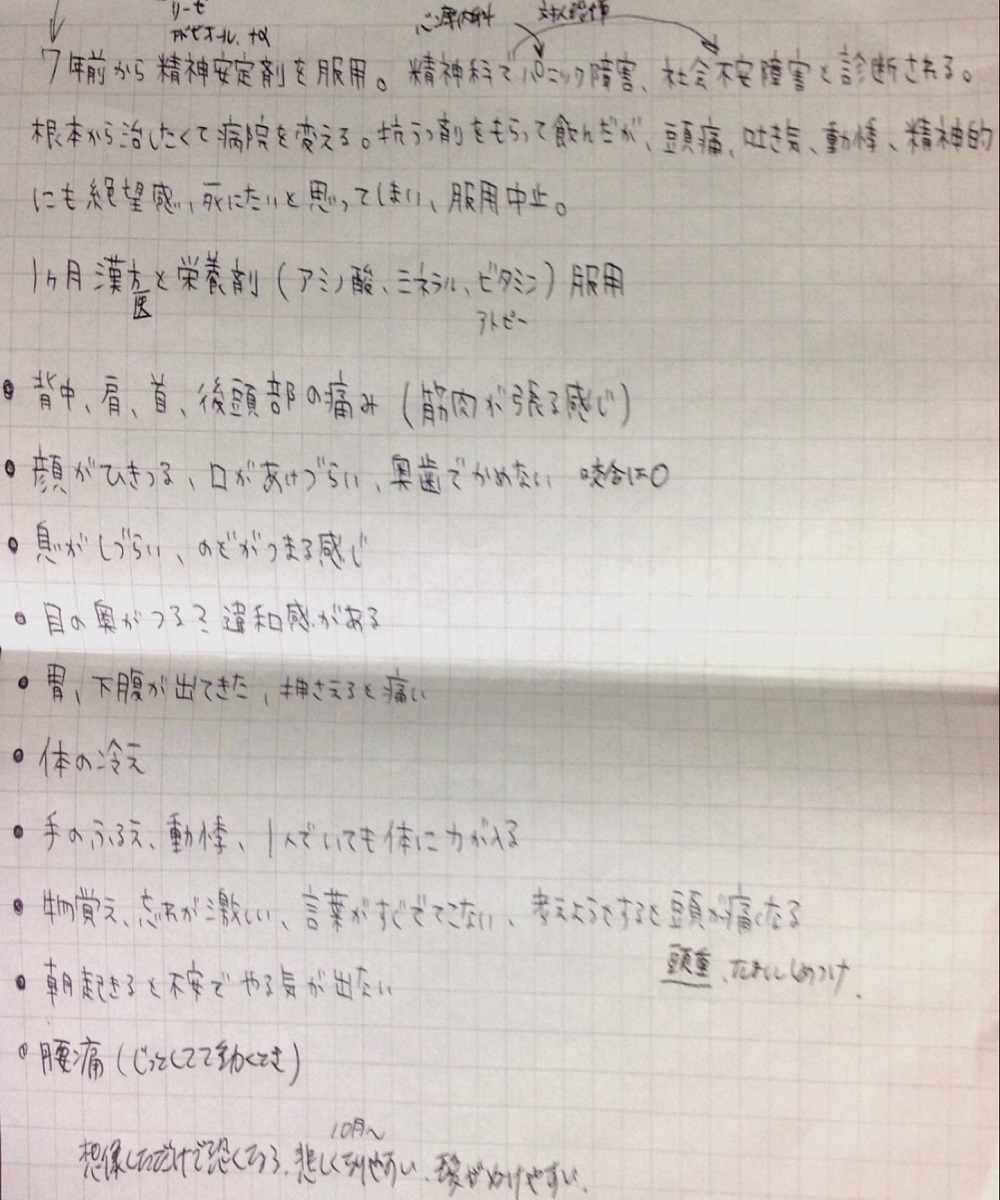 リーゼ
+α
心療内科 対人恐怖
7年前から精神安定剤を服用。精神科でパニック障害、社会不安障害と診断される。
根本から治したくて病院を変える。抗うつ剤をもらって飲んだが、頭痛、吐き気、動悸、精神的
にも絶望感、死にたいと思ってしまい、服用中止。
1ヶ月漢方と栄養剤(アミノ酸、ミネラル、ビタミン)服用
医 アトピー
• 背中、肩、首、後頭部の痛み(筋肉が張る感じ)
• 顔がひきつる、口があけづらい、奥歯でかめない 咬合は○
• 息がしづらい、のどがつまる感じ
• 目の奥がつる?違和感がある
• 胃、下腹が出てきた、押さえると痛い
• 体の冷え
• 手のふるえ、動悸、1人でいても体に力が入る
• 物覚え、忘れが激しい、言葉がすぐでてこない、考えようとすると頭が痛くなる
頭重、たまにしめつけ.
• 朝起きると不安でやる気が出ない
• 腰痛(じっとしてて動くとき)
10月〜
想像しただけで恐くなる、悲しくなりやすい、髪がぬけやすい.